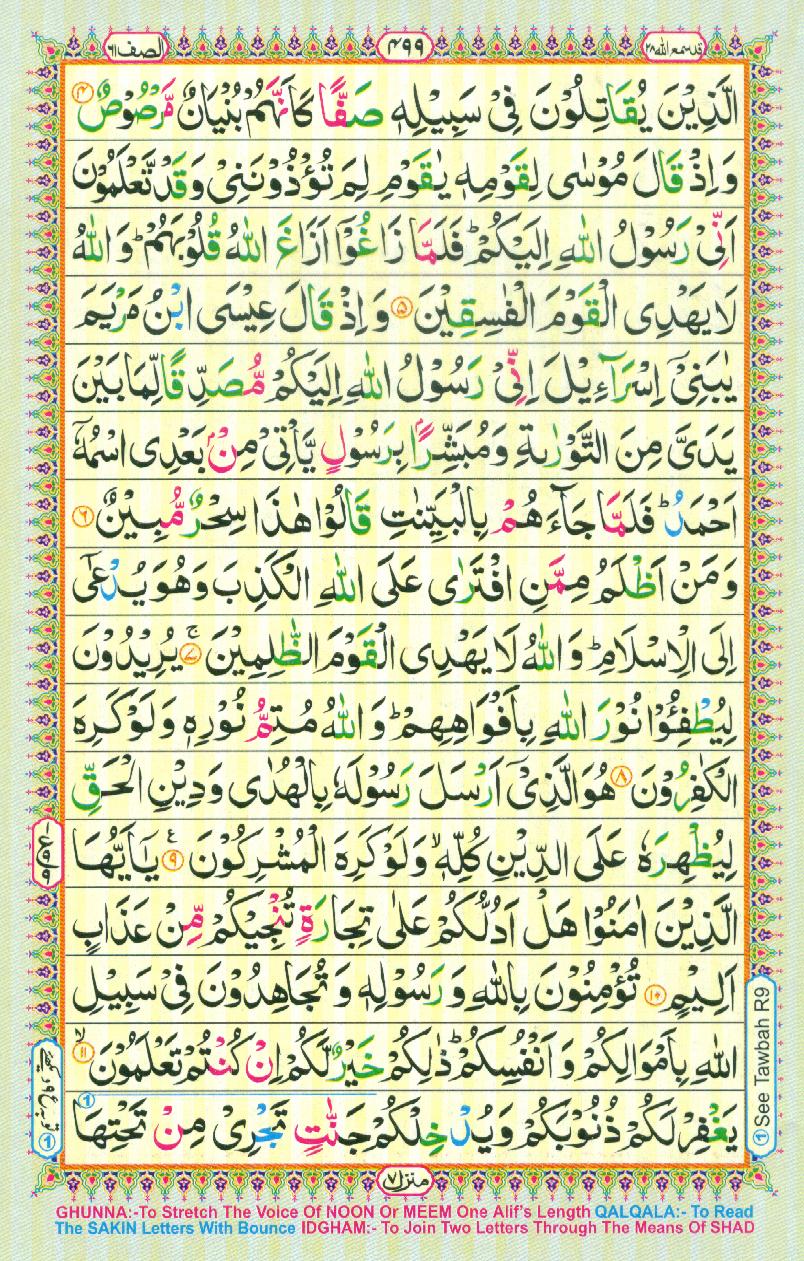 الصف ٦١
٤٩٩
قد سمع الله ٢٨
الَّذِيْنَ يُقَاتِلُوْنَ فِيْ سَبِيْلِهٖ صَفًّا كَاَنَّهُمْ بُنْيَانٌ مَّرْصُوْصٌ ۴
وَاِذْ قَالَ مُوْسٰى لِقَوْمِهٖ يٰقَوْمِ لِمَ تُؤْذُوْنَنِيْ وَقَدْ تَّعْلَمُوْنَ
اَنِّيْ رَسُوْلُ اللّٰهِ اِلَيْكُمْ ؕ فَلَمَّا زَاغُوْۤا اَزَاغَ اللّٰهُ قُلُوْبَهُمْ ؕ وَاللّٰهُ
لَا يَهْدِى الْقَوْمَ الْفٰسِقِيْنَ ۵ وَاِذْ قَالَ عِيْسَى ابْنُ مَرْيَمَ
يٰبَنِيْۤ اِسْرَآءِيْلَ اِنِّيْ رَسُوْلُ اللّٰهِ اِلَيْكُمْ مُّصَدِّقًا لِّمَا بَيْنَ
يَدَيَّ مِنَ التَّوْرٰىةِ وَمُبَشِّرًۢا بِرَسُوْلٍ يَّاْتِيْ مِنْۢ بَعْدِى اسْمُهٗۤ
اَحْمَدُ ؕ فَلَمَّا جَآءَهُمْ بِالْبَيِّنٰتِ قَالُوْا هٰذَا سِحْرٌ مُّبِيْنٌ ۶
وَمَنْ اَظْلَمُ مِمَّنِ افْتَرٰى عَلَى اللّٰهِ الْكَذِبَ وَهُوَ يُدْعٰۤى
اِلَى الْاِسْلَامِ ؕ وَاللّٰهُ لَا يَهْدِى الْقَوْمَ الظّٰلِمِيْنَ ۷ ج يُرِيْدُوْنَ
لِيُطْفِـُٔوْا نُوْرَ اللّٰهِ بِاَفْوَاهِهِمْ ؕ وَاللّٰهُ مُتِمُّ نُوْرِهٖ وَلَوْ كَرِهَ
الْكٰفِرُوْنَ ۸ هُوَ الَّذِيْۤ اَرْسَلَ رَسُوْلَهٗ بِالْهُدٰى وَدِيْنِ الْحَقِّ
لِيُظْهِرَهٗ عَلَى الدِّيْنِ كُلِّهٖ ۙ وَلَوْ كَرِهَ الْمُشْرِكُوْنَ ۹ ع يٰۤاَيُّهَا
الَّذِيْنَ اٰمَنُوْا هَلْ اَدُلُّكُمْ عَلٰى تِجَارَةٍ تُنْجِيْكُمْ مِّنْ عَذَابٍ
اَلِيْمٍ ۱۰ تُؤْمِنُوْنَ بِاللّٰهِ وَرَسُوْلِهٖ وَتُجَاهِدُوْنَ فِيْ سَبِيْلِ
اللّٰهِ بِاَمْوَالِكُمْ وَاَنْفُسِكُمْ ؕ ذٰلِكُمْ خَيْرٌ لَّكُمْ اِنْ كُنْتُمْ تَعْلَمُوْنَ ۱۱ لا
يَغْفِرْ لَكُمْ ذُنُوْبَكُمْ وَيُدْخِلْكُمْ جَنّٰتٍ تَجْرِيْ مِنْ تَحْتِهَا ①
① See Tawbah R9
منزل ٧
GHUNNA:-To Stretch The Voice Of NOON Or MEEM One Alif's Length QALQALA:- To Read
The SAKIN Letters With Bounce IDGHAM:- To Join Two Letters Through The Means Of SHAD